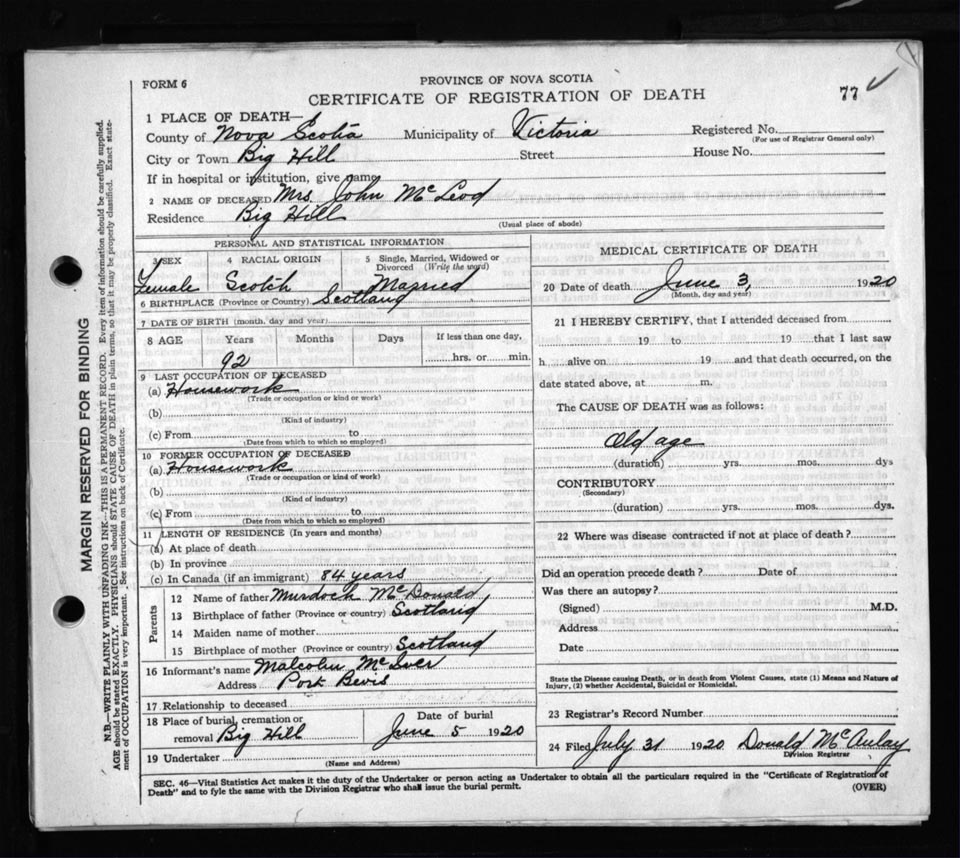 FORM 6
PROVINCE OF NOVA SCOTIA
CERTIFICATE OF REGISTRATION OF DEATH
77
1 PLACE OF DEATH—
County of Nova Scotia Municipality of Victoria Registered No.
(For use of Registrar General only)
City or Town Big Hill Street House No.
If in hospital or institution, give name
2 NAME OF DECEASED Mrs. John McLeod
Residence Big Hill
(Usual place of abode)
PERSONAL AND STATISTICAL INFORMATION
3 SEX 4 RACIAL ORIGIN 5 Single, Married, Widowed or Divorced (Write the word)
Female Scotch Married
6 BIRTHPLACE (Province or Country) Scotland
7 DATE OF BIRTH (month, day and year)
8 AGE Years Months Days If less than one day,
92 hrs. or min.
9 LAST OCCUPATION OF DECEASED
(a) Housework
(Trade or occupation or kind or work)
(b)
(Kind of industry)
(c) From to
(Date from which to which so employed)
10 FORMER OCCUPATION OF DECEASED
(a) Housework
(Trade or occupation or kind of work)
(b)
(Kind of industry)
(c) From to
(Date from which to which so employed)
11 LENGTH OF RESIDENCE (In years and months)
(a) At place of death
(b) In province
(c) In Canada (if an immigrant) 84 years
Parents
12 Name of father Murdoch McDonald
13 Birthplace of father (Province or country) Scotland
14 Maiden name of mother
15 Birthplace of mother (Province or country) Scotland
16 Informant's name Malcolm McIver
Address Port Bevis
17 Relationship to deceased
18 Place of burial, cremation or removal Big Hill Date of burial June 5 1920
19 Undertaker
(Name and Address)
MEDICAL CERTIFICATE OF DEATH
20 Date of death June 3, 1920
(Month, day and year)
21 I HEREBY CERTIFY, that I attended deceased from
19 to 19 that I last saw
h alive on 19 and that death occurred, on the
date stated above, at m.
The CAUSE OF DEATH was as follows:
Old age
(duration) yrs. mos. dys
CONTRIBUTORY
(Secondary)
(duration) yrs. mos. dys.
22 Where was disease contracted if not at place of death?
Did an operation precede death? Date of
Was there an autopsy?
(Signed) M.D.
Address
Date
State the Disease causing Death, or in death from Violent Causes, state (1) Means and Nature of
Injury, (2) whether Accidental, Suicidal or Homicidal.
23 Registrar's Record Number
24 Filed July 31 1920 Donald McAulay
Division Registrar
SEC. 46—Vital Statistics Act makes it the duty of the Undertaker or person acting as Undertaker to obtain all the particulars required in the "Certificate of Registration of
Death" and to fyle the same with the Division Registrar who shall issue the burial permit.
(OVER)
MARGIN RESERVED FOR BINDING
N.B.—WRITE PLAINLY WITH UNFADING INK—THIS IS A PERMANENT RECORD. Every item of information should be carefully supplied.
AGE should be stated EXACTLY. PHYSICIANS should STATE CAUSE OF DEATH in plain terms, so that it may be properly classified. Exact state-
ment of OCCUPATION is very important. See instructions on back of Certificate.